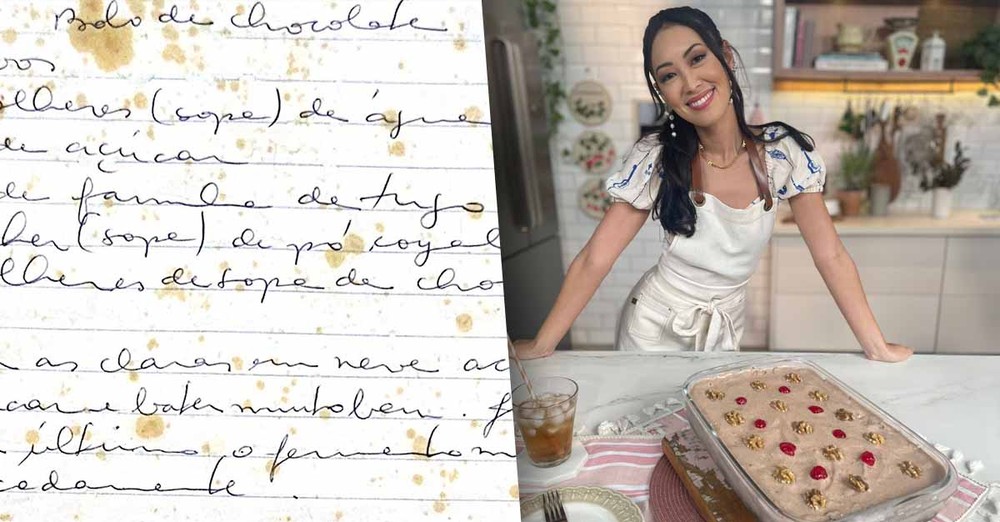 Bolo de chocolate
ovos
olheres (sopa) de água
de açúcar
de farinha de trigo
lher (sopa) de pó royal
lheres de sopa de cho
as claras em neve ac
car e bater muito bem.
último o fermento m
cadamente.